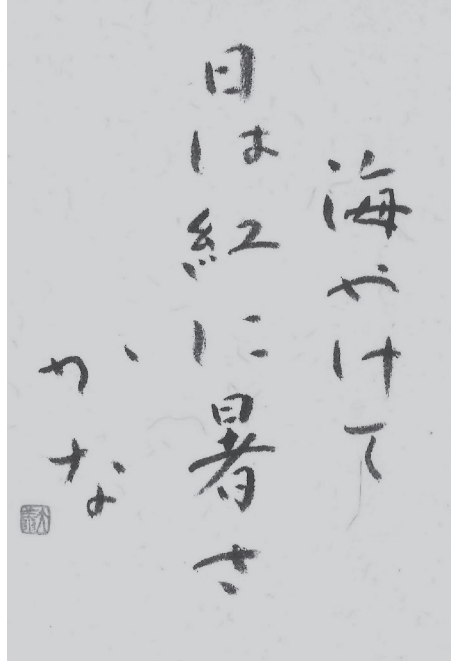 海やけて
日は紅に暑さ
かな